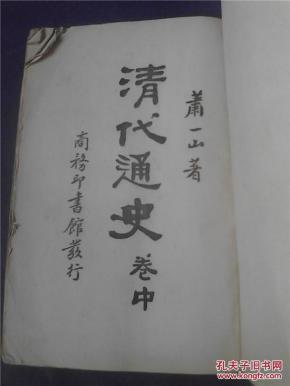 蕭一山著
清代通史 卷中
商務印書館發行
孔夫子旧书网